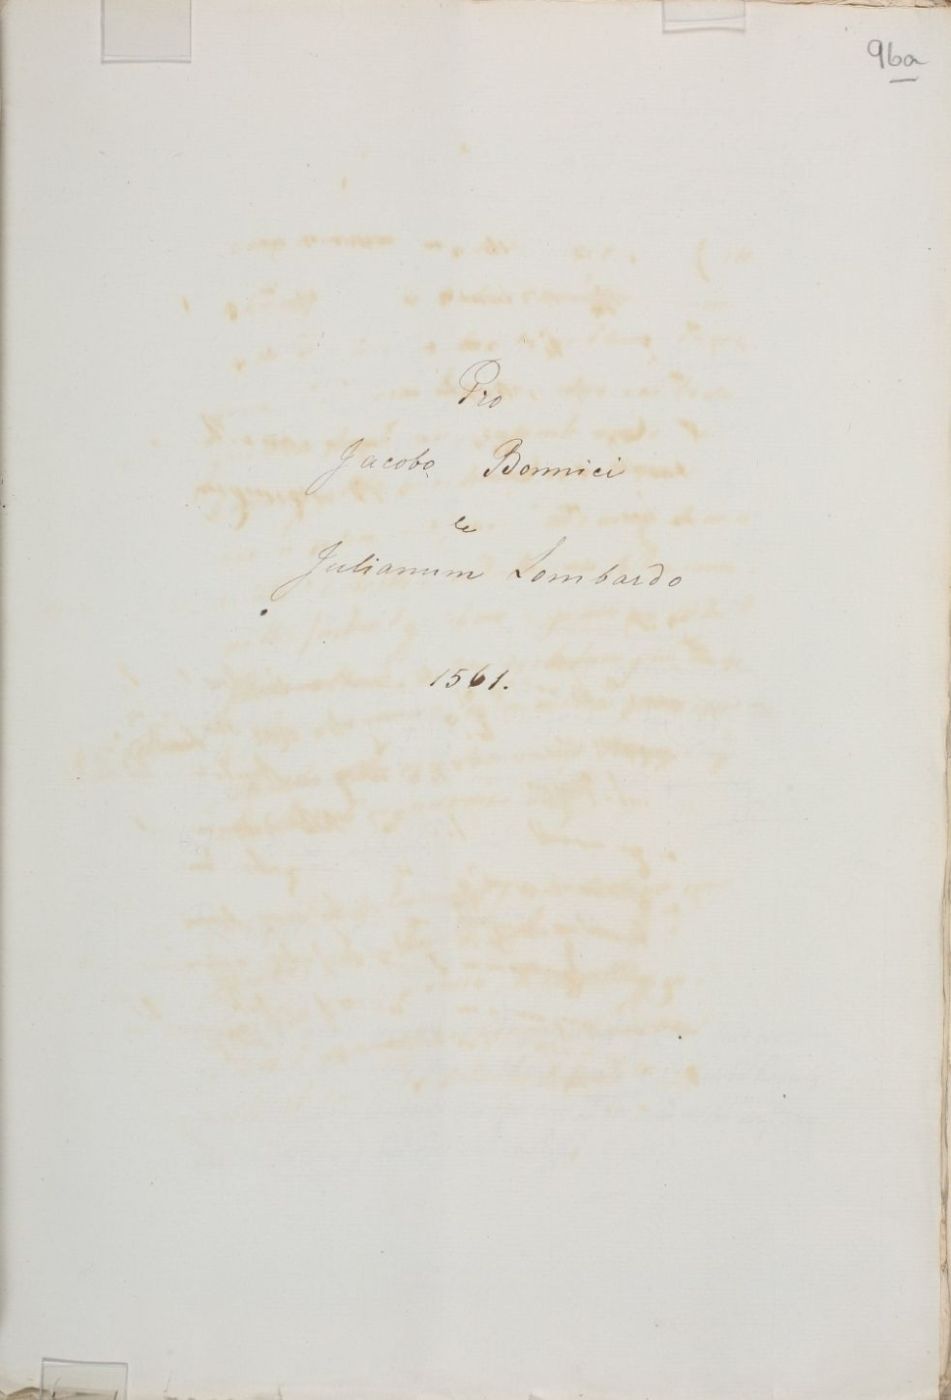 96a
Pro
Jacobo Bonnici
Julianum Lombardo
1561.